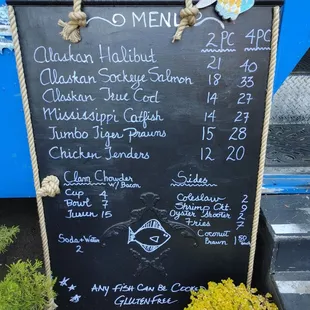 MENU
2PC 4PC
Alaskan Halibut 21 40
Alaskan Sockeye Salmon 18 33
Alaskan True Cod 14 27
Mississippi Catfish 14 27
Jumbo Tiger Prawns 15 28
Chicken Tenders 12 20
Clam Chowder
w/ Bacon
Cup 4
Bowl 7
15
Soda + Water
2
Sides
Coleslaw 2
Shrimp Ckt.
Oyster Shooter 2
Fries 7
Coconut
Prawn
ANY FISH CAN BE COOKED
GLUTENFREE